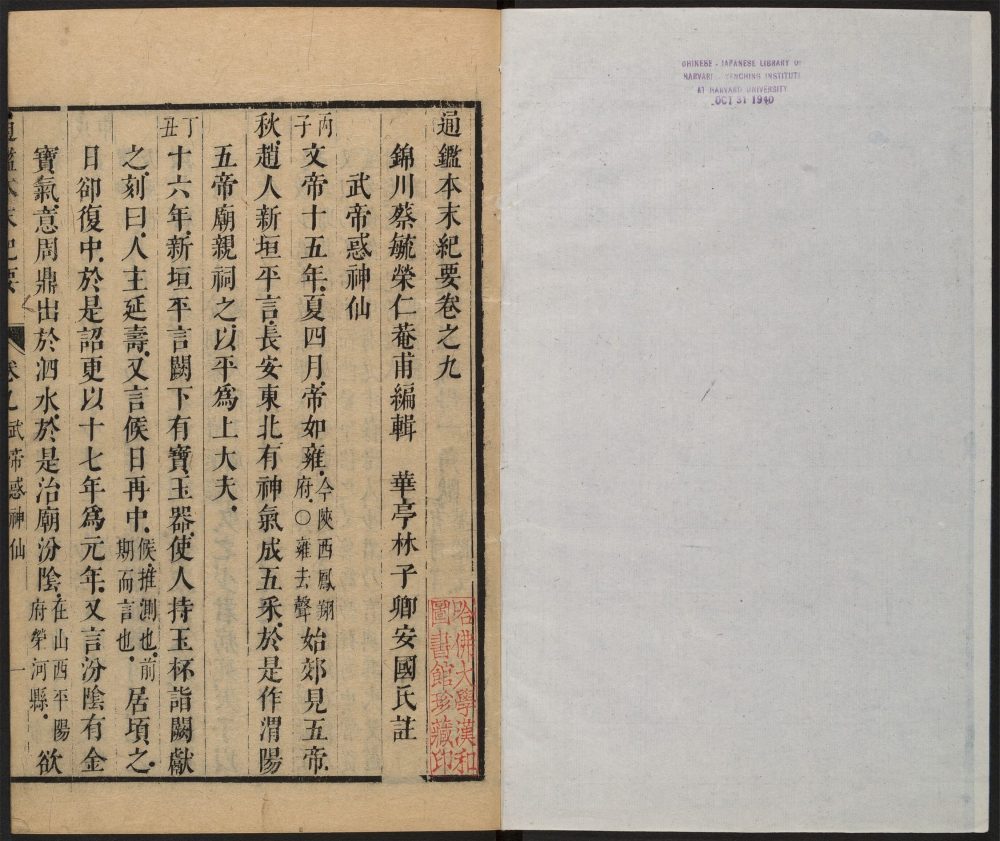 CHINESE - JAPANESE LIBRARY OF
HARVARD-YENCHING INSTITUTE
AT HARVARD UNIVERSITY
OCT 31 1940
通鑑本末紀要卷之九
錦川蔡毓榮仁菴甫編輯　華亭林子卿安國氏註
武帝惑神仙
丙子文帝十五年夏四月帝如雍今陝西鳳翔府○雍去聲始郊見五帝
秋趙人新垣平言長安東北有神氣成五采於是作渭陽
五帝廟親祠之以平爲上大夫
丁丑十六年新垣平言闕下有寶玉器使人持玉杯詣闕獻
之刻曰人主延壽又言候日再中候推測也前期而言也居頃之
日卻復中於是詔更以十七年爲元年又言汾陰有金
寶氣意周鼎出於泗水於是治廟汾陰在山西平陽府榮河縣欲
通鑑本末紀要　卷九　武帝惑神仙　一
哈佛大學漢和
圖書館珍藏印